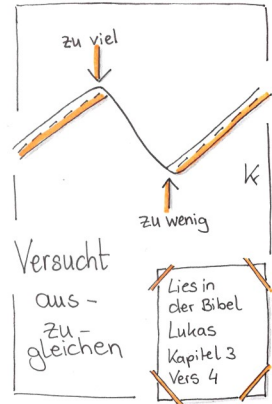 zu viel
zu wenig
Versucht
aus-
zu-
gleichen
Lies in
der Bibel
Lukas
Kapitel 3
Vers 4